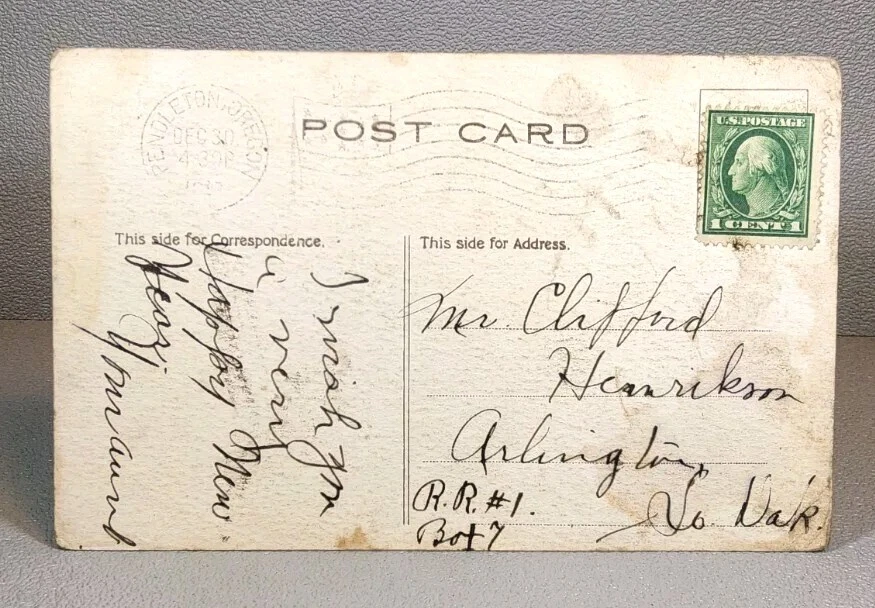 PENDLETON, OREGON
DEC 30
4-30P
POST CARD
U.S. POSTAGE
1 CENT 1
This side for Correspondence.
This side for Address.
I wish you
a very
Happy New
Year.
Your aunt
Mr. Clifford
Henrikson
Arlington,
R.R. #1.
So. Dak.
Box 7